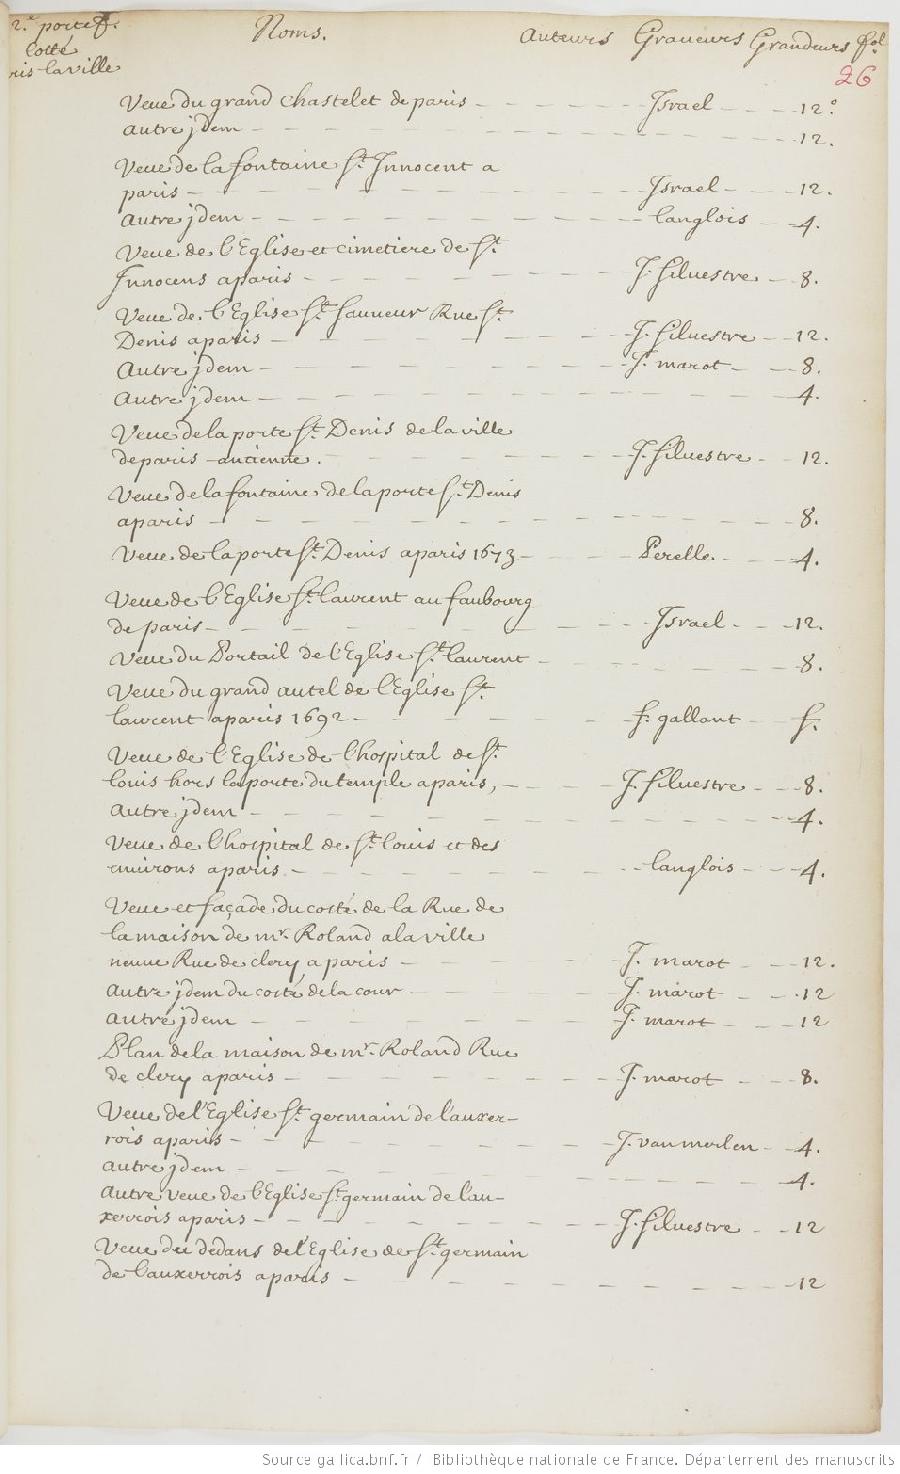 2.e portef. Noms. Auteurs Graueurs Grandeurs fol
costé
ris-la ville 26
Veue du grand Chastelet de paris - Israel - 12.°
autre jdem - 12.
Veue de la fontaine St Innocent a
paris - Israel - 12.
autre jdem - langlois 4.
Veue de l'Eglise et cimetiere de St
Innocens a paris - J. Siluestre - 8.
Veue de l'Eglise St Sauueur Rue St
Denis a paris - J. Siluestre - 12.
Autre jdem - J. marot - 8.
Autre jdem - 4.
Veue de la porte St Denis de la ville
de paris - ancienne. - J. Siluestre - 12.
Veue de la fontaine de la porte St Denis
a paris - 8.
Veue de la porte St Denis a paris 1673 - Perelle. - 4.
Veue de l'Eglise St laurent au faubourg
de paris - Israel - 12.
Veue du Portail de l'Eglise St laurent - 8.
Veue du grand autel de l'Eglise St
laurent a paris 1692 - f. gallant - f.
Veue de l'Eglise de l'hospital de St
louis hors la porte du temple a paris, - J. Siluestre - 8.
autre jdem - 4.
Veue de l'hospital de St louis et des
enuirons a paris - langlois - 4.
Veue et façade du costé de la Rue de
la maison de mr. Roland a la ville
neuue Rue de clery a paris - J. marot - 12.
autre jdem du costé de la cour - J. marot - 12
autre jdem - J. marot - 12
Plan de la maison de mr. Roland Rue
de clery a paris - J. marot - 8.
Veue de l'Eglise St germain de l'auxer-
rois a paris - J. van merlen - 4.
autre jdem - 4.
autre veue de l'Eglise St germain de l'au-
xerrois a paris - J. Siluestre - 12
Veue du dedans de l'Eglise de St germain
de l'auxerrois a paris - 12
Source gallica.bnf.fr / Bibliothèque nationale de France. Département des manuscrits